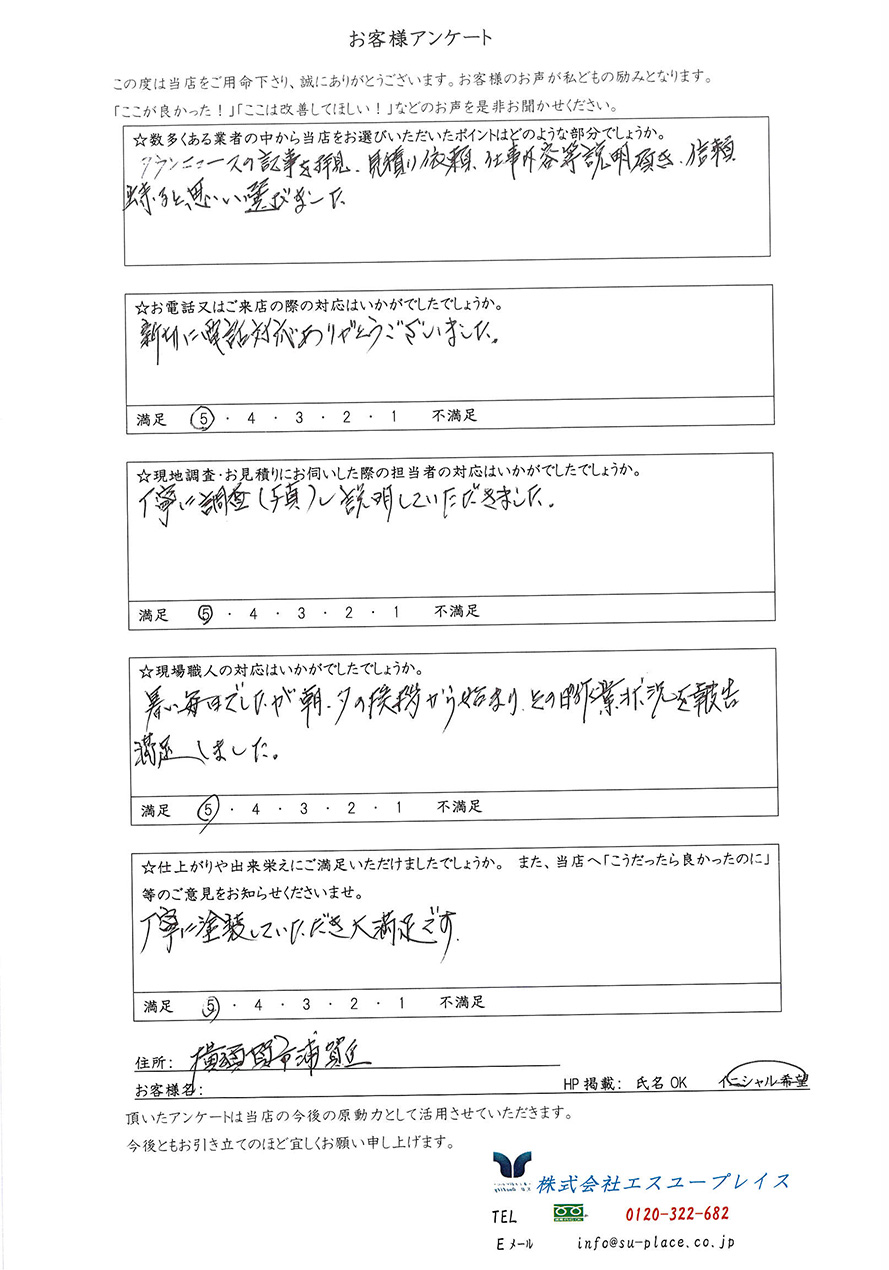 お客様アンケート
この度は当店をご用命下さり、誠にありがとうございます。お客様のお声が私どもの励みとなります。
「ここが良かった！」「ここは改善してほしい！」などのお声を是非お聞かせください。
☆数多くある業者の中から当店をお選びいただいたポイントはどのような部分でしょうか。
タウンニュースの記事を拝見、見積り依頼、仕事内容等説明頂き、信頼
出来ると思い選びました
☆お電話又はご来店の際の対応はいかがでしたでしょうか。
親切に電話対応ありがとうございました。
満足 5・4・3・2・1 不満足
☆現地調査・お見積りにお伺いした際の担当者の対応はいかがでしたでしょうか。
丁寧に調査(写真)し説明していただきました。
満足 5・4・3・2・1 不満足
☆現場職人の対応はいかがでしたでしょうか。
暑い毎日でしたが朝、夕の挨拶から始まり、その日の作業状況を報告
満足しました。
満足 5・4・3・2・1 不満足
☆仕上がりや出来栄えにご満足いただけましたでしょうか。 また、当店へ「こうだったら良かったのに」
等のご意見をお知らせくださいませ。
丁寧に塗装していただき大満足です.
満足 5・4・3・2・1 不満足
住所: 横須賀市浦賀丘
お客様名: HP掲載: 氏名OK イニシャル希望
頂いたアンケートは当店の今後の原動力として活用させていただきます。
今後ともお引き立てのほど宜しくお願い申し上げます。
株式会社エスユープレイス
TEL 0120-322-682
Eメール info@su-place.co.jp